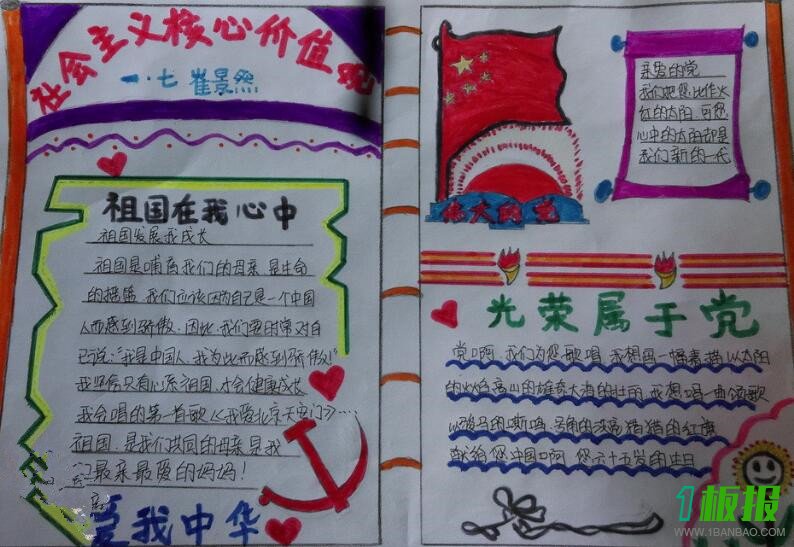 社会主义核心价值观
一·七 崔景然
祖国在我心中
祖国发展我成长
祖国是哺育我们的母亲 是生命
的摇篮 我们应该因为自己是一个中国
人而感到骄傲。因此,我们要时常对自
己说:"我是中国人,我为此而感到骄傲!"
我坚信只有心系祖国,才会健康成长
我会唱的第一首歌《我爱北京天安门》…
祖国,是我们共同的母亲 是我
们最亲最爱的妈妈!
爱我中华
伟大的党
亲爱的党
我们把您比作火
红的太阳,可您
心中的太阳却是
我们新的一代
光荣属于党
党啊,我们为您歌唱,我想画一幅素描 以太阳
的 高山的雄奇大海的壮丽,我想唱一曲颂歌
以骏马的嘶鸣 号角的 猎猎的红旗
献给您 中国啊 您六十五岁的生日
1板报
WWW.1BANBAO.COM